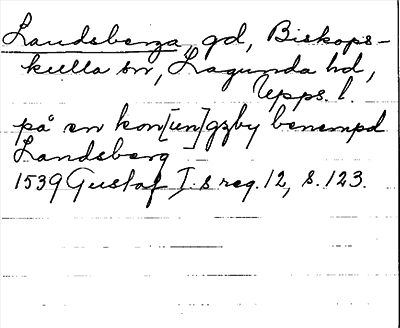 Landsberga, gd, Biskops-
kulla sn, Lagunda hd,
Upps. l.
på en kon[un]gzby benempd
Landsberg
1539 Gustaf I. s reg. 12, s. 123.